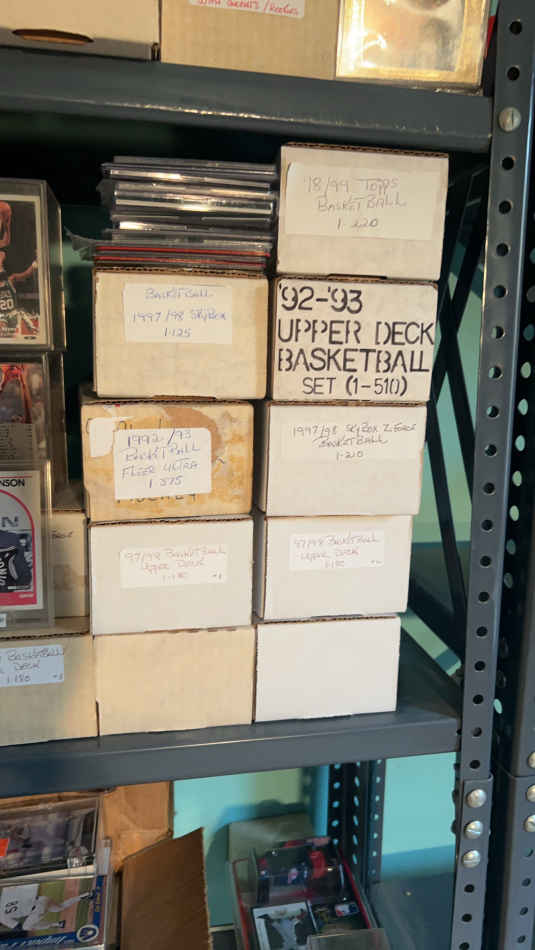 WITH INSERTS/ROOKIES
'98/99 TOPPS
BASKETBALL
1-220
BASKETBALL
1997/98 SKYBOX
1-125
'92-'93
UPPER DECK
BASKETBALL
SET (1-510)
1992/93
BASKETBALL
FLEER ULTRA
1-375
1997/98 SKYBOX Z-FORCE
BASKETBALL
1-210
97/98 BASKETBALL
UPPER DECK
1-180
97/98 BASKETBALL
UPPER DECK
1-180
BASKETBALL
DECK
1-180
20